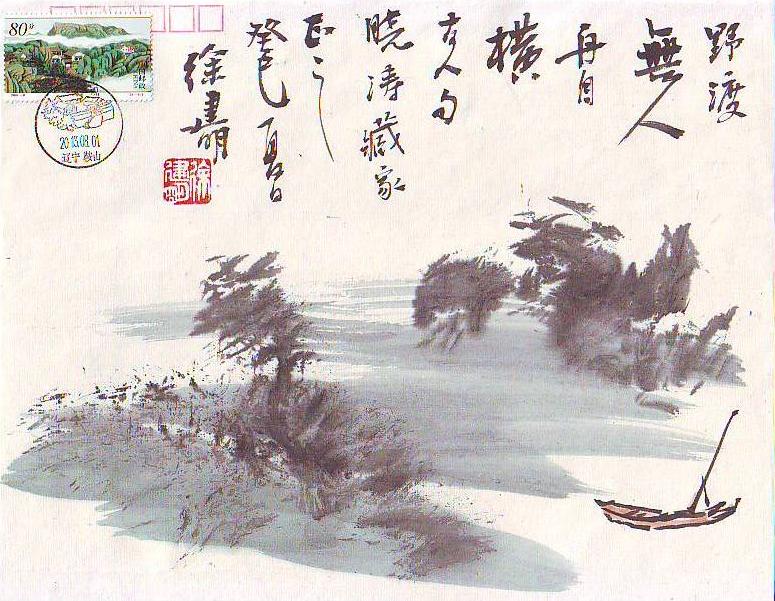 野渡
無人
舟自
横
古人句
晓涛藏家
正之
癸巳夏日
徐建明
徐建明
80分
2013.08.01
辽宁 鞍山